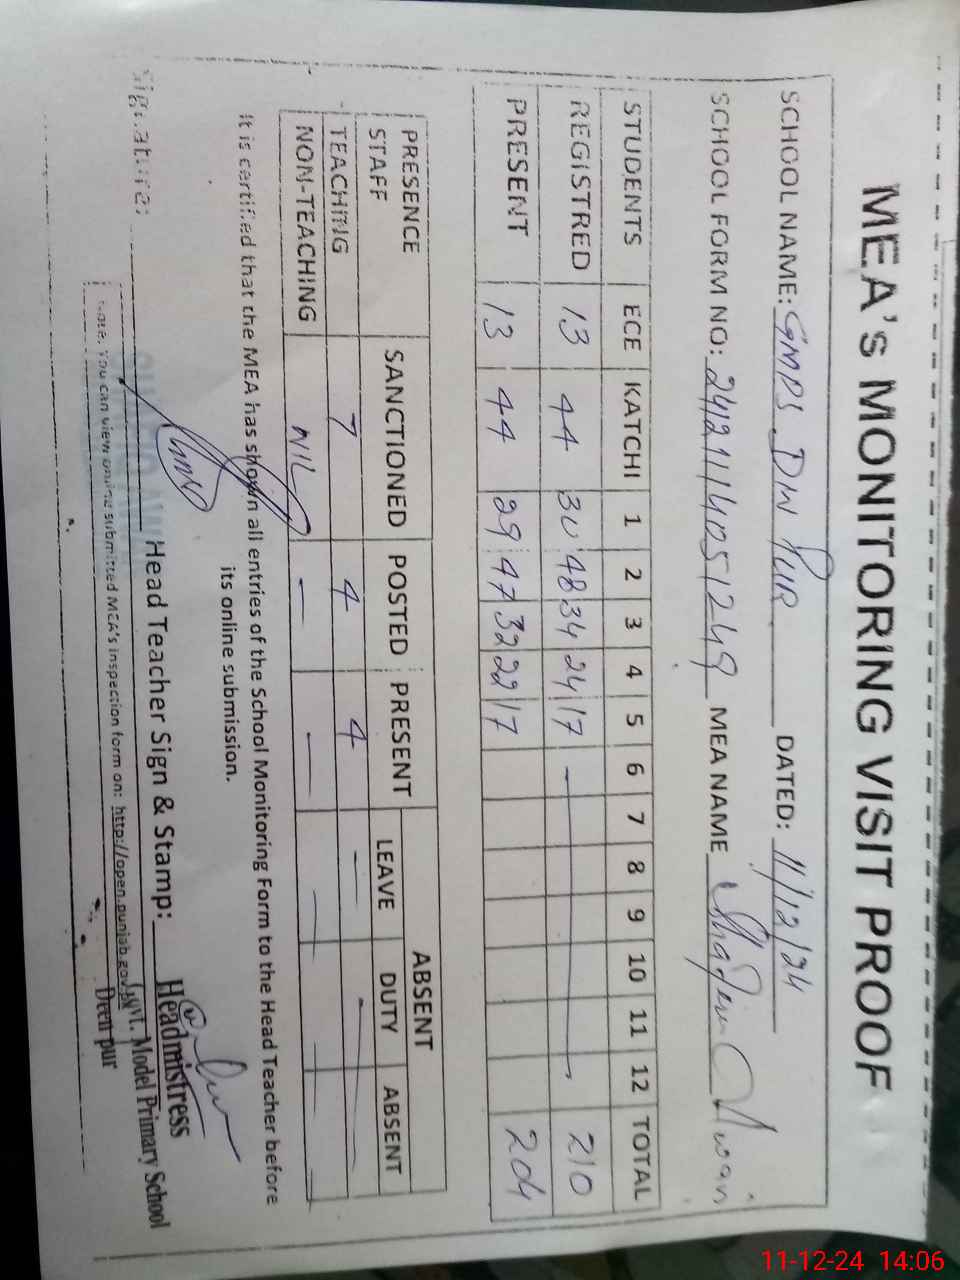 MEA's MONITORING VISIT PROOF
SCHOOL NAME: GMPS DIN PUR DATED: 11/12/24
SCHOOL FORM NO: MEA NAME
STUDENTS ECE KATCHI 1 2 3 4 5 6 7 8 9 10 11 12 TOTAL
REGISTRED 13 44 30 48 34 24 17 — 210
PRESENT 13 44 29 47 32 22 17 204
PRESENCE SANCTIONED POSTED PRESENT ABSENT
STAFF LEAVE DUTY ABSENT
TEACHING 7 4 4 — —
NON-TEACHING NIL — — — — —
It is certified that the MEA has shown all entries of the School Monitoring Form to the Head Teacher before
its online submission.
Signature: Head Teacher Sign & Stamp:
Headmistress
Govt. Model Primary School
Deen pur
Note. You can view online submitted MEA's inspection form on: http://open.punjab.gov.pk
11-12-24 14:06